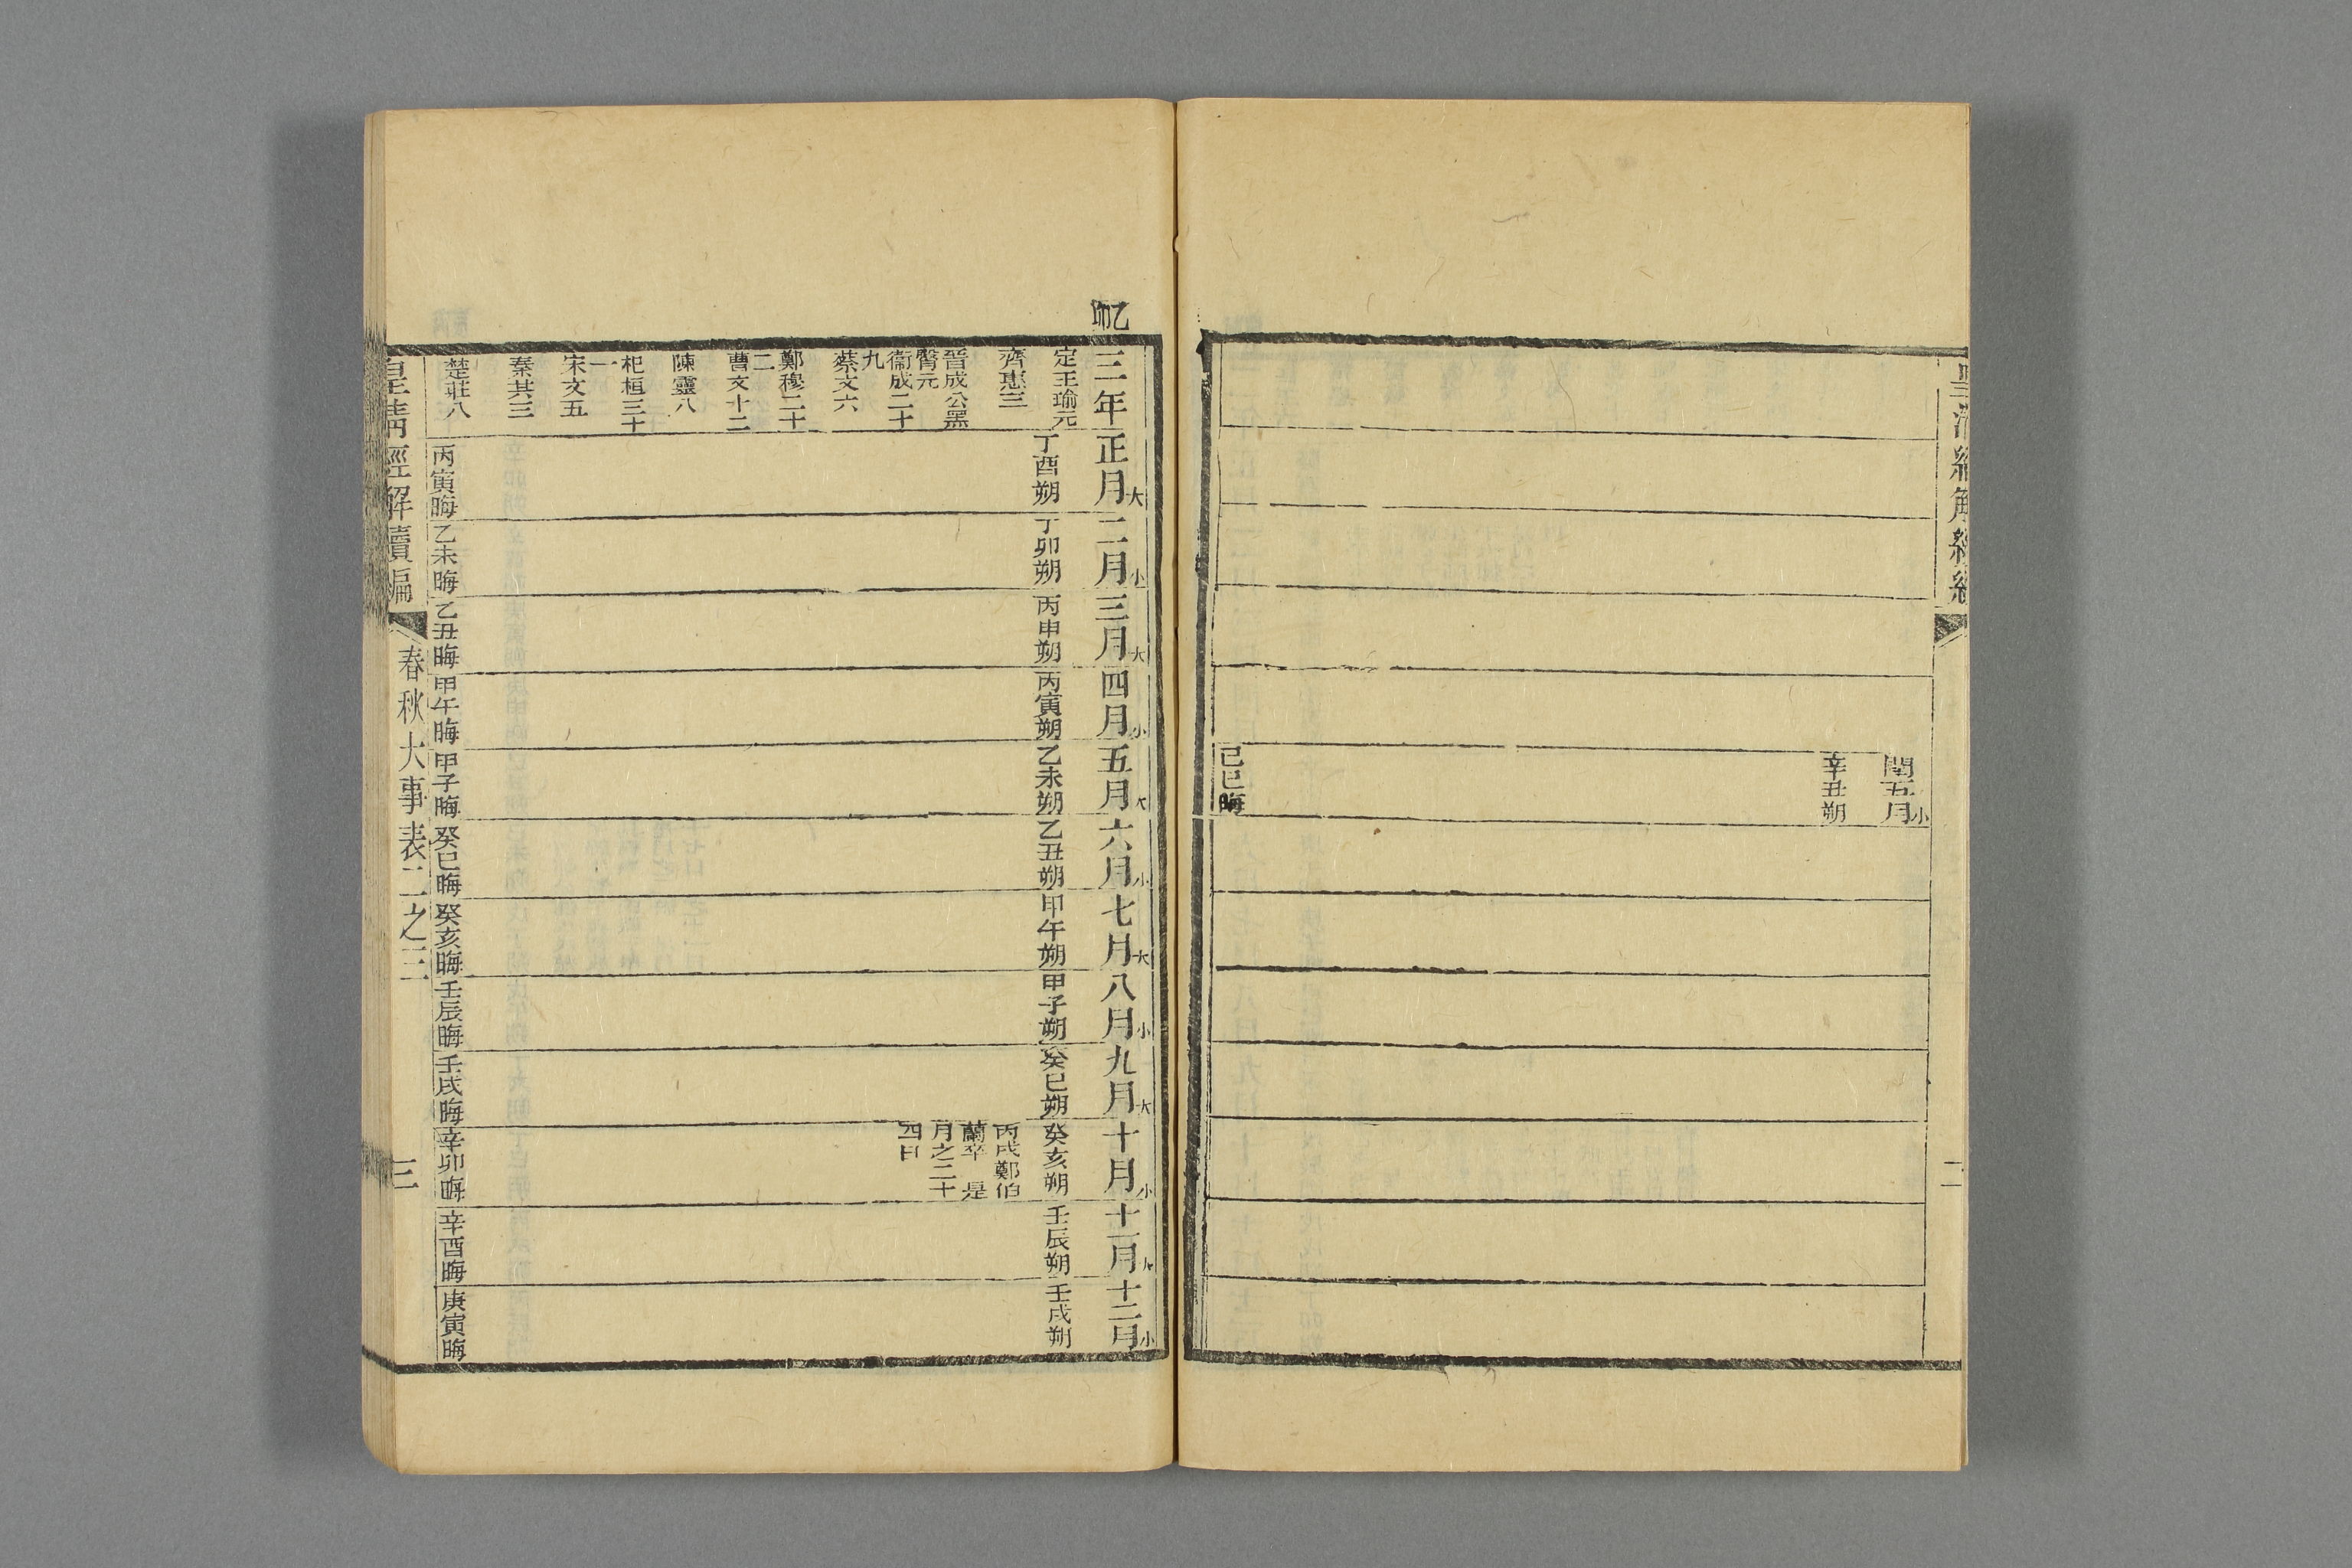 皇清經解續編
二
閏五月小
辛丑朔
己巳晦
乙卯
三年
定王瑜元
齊惠三
晉成公黑
臀元
衞成二十
九
蔡文六
鄭穆二十
二
曹文十二
陳靈八
杞桓三十
一
宋文五
秦共三
楚莊八
正月大
丁酉朔
丙寅晦
二月小
丁卯朔
乙未晦
三月大
丙申朔
乙丑晦
四月小
丙寅朔
甲午晦
五月大
乙未朔
甲子晦
六月小
乙丑朔
癸巳晦
七月大
甲午朔
癸亥晦
八月小
甲子朔
壬辰晦
九月大
癸巳朔
壬戌晦
十月小
癸亥朔
丙戌鄭伯
蘭卒 是
月之二十
四日
辛卯晦
十一月大
壬辰朔
辛酉晦
十二月小
壬戌朔
庚寅晦
皇清經解續編
春秋大事表二之三
三